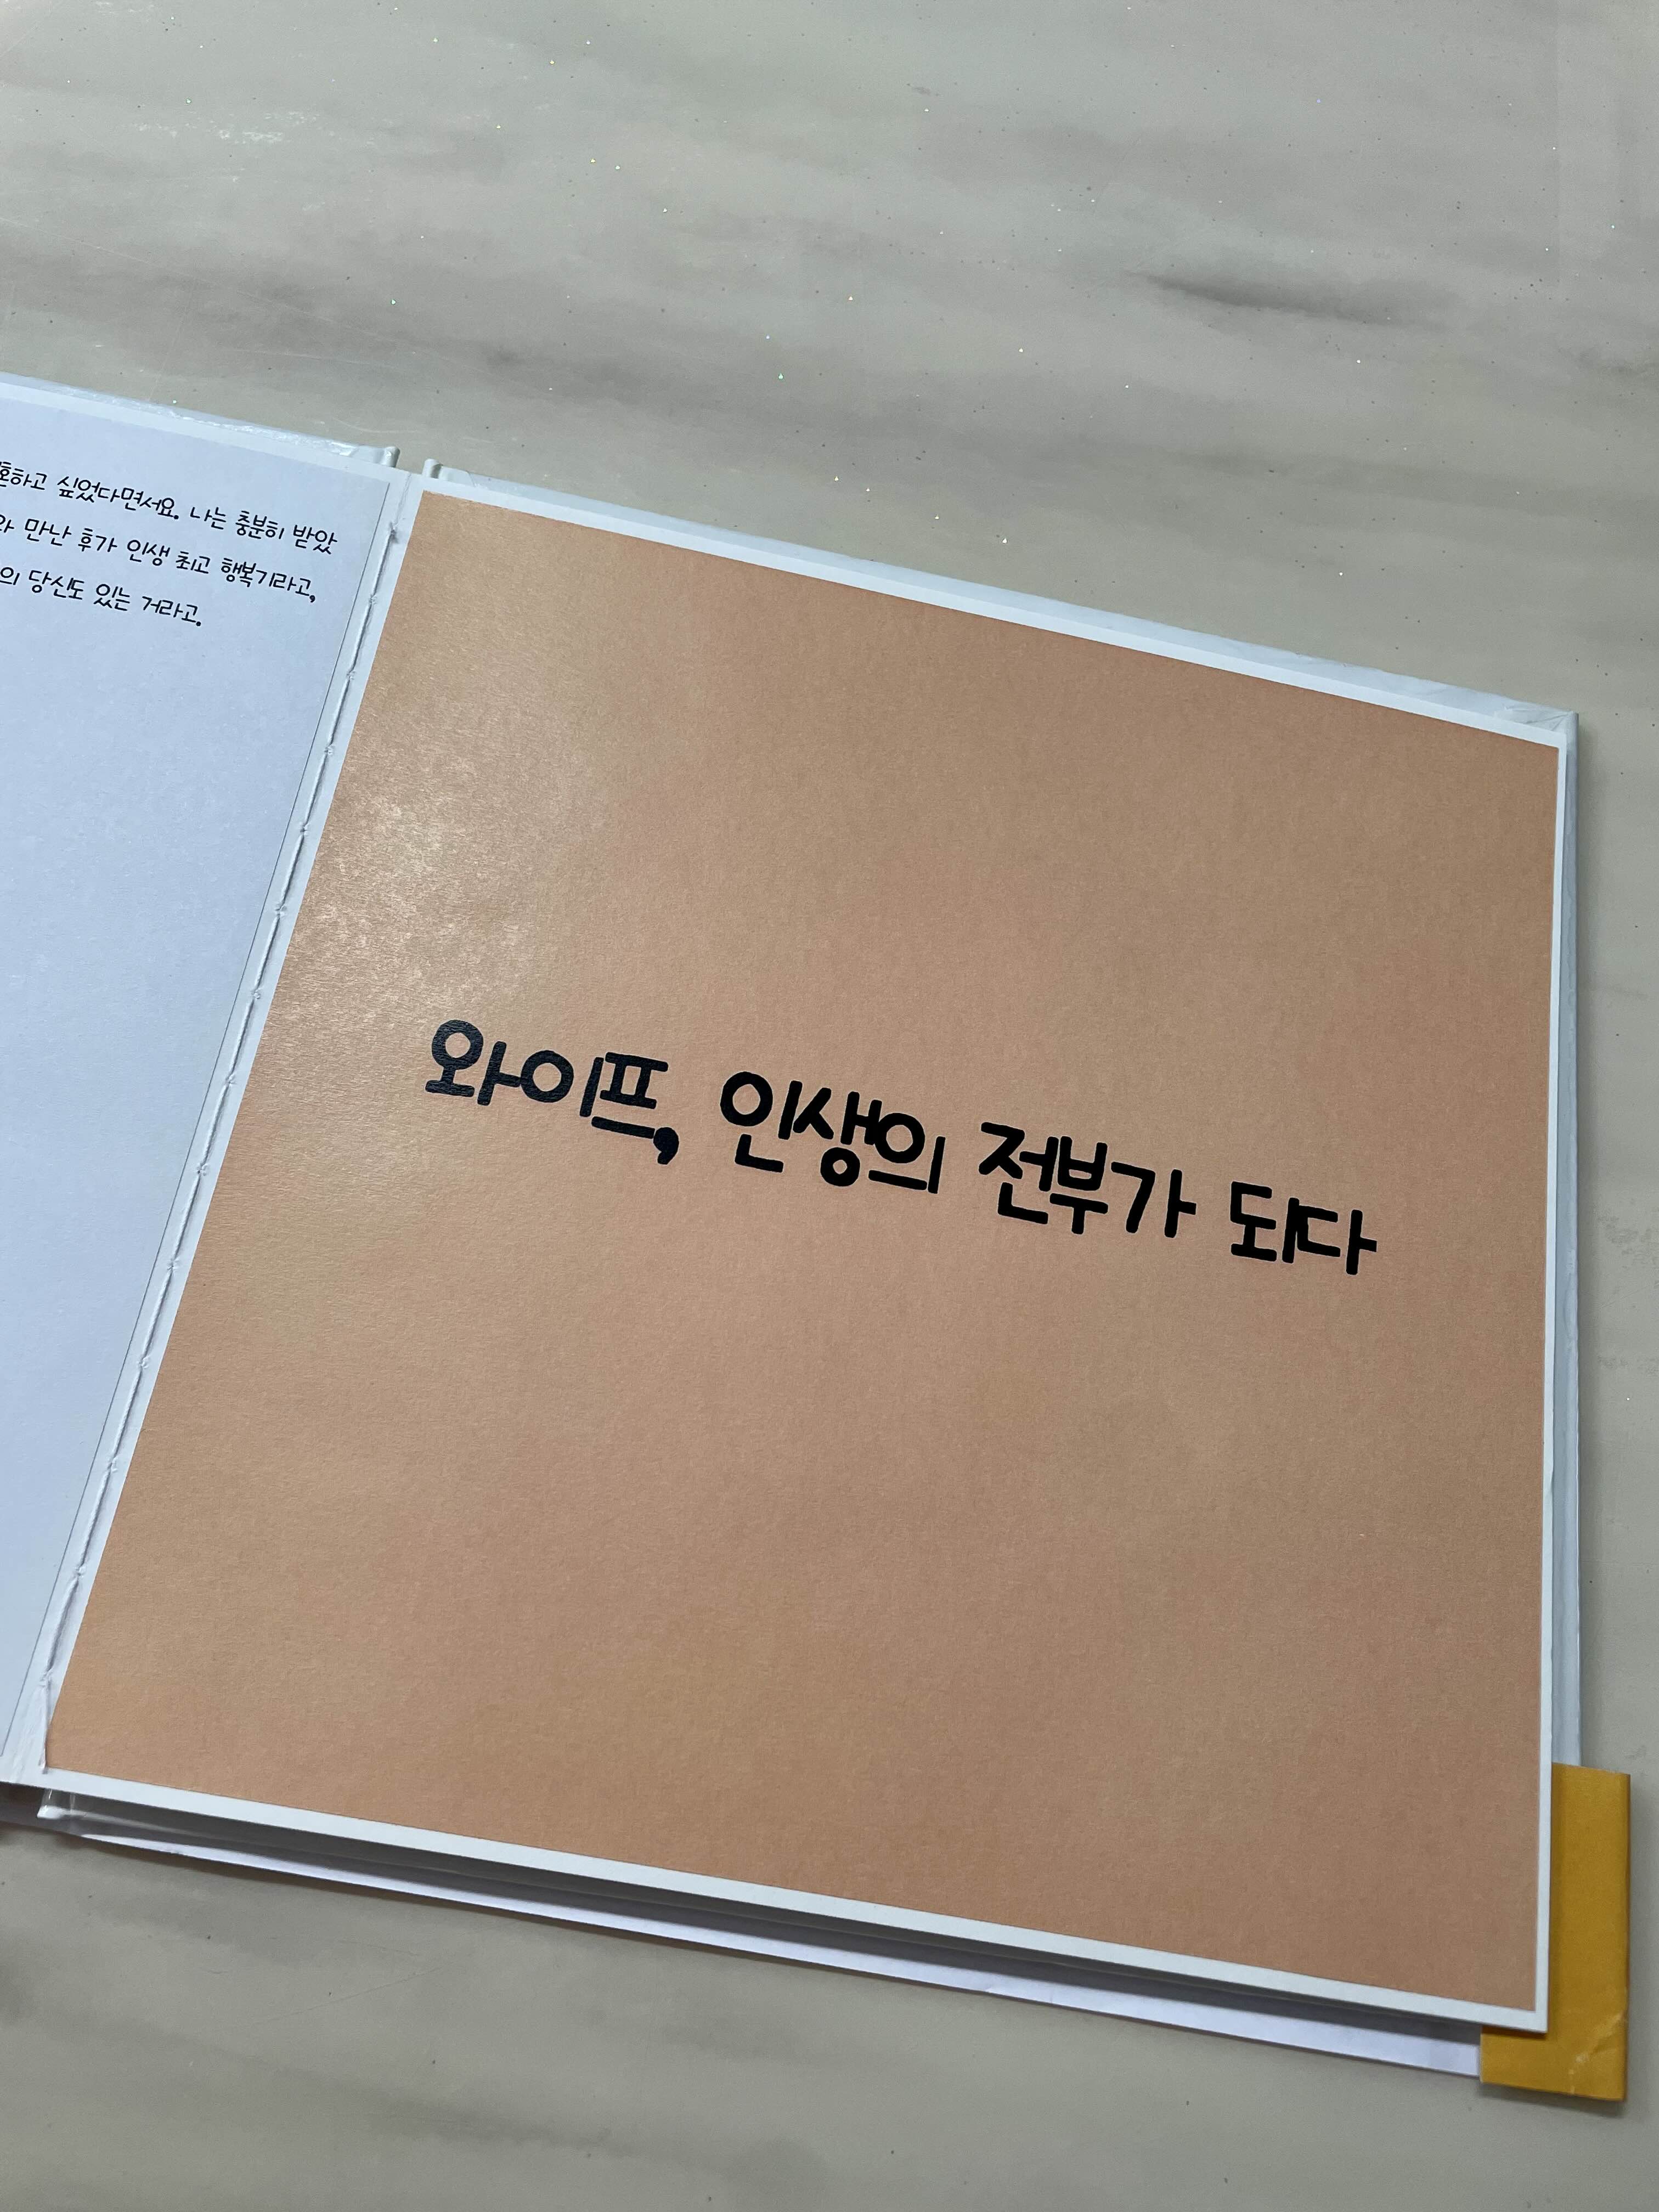 하고 싶었다면서요. 나는 충분히 받았
만난 후가 인생 최고 행복기라고,
의 당신도 있는 거라고.
와이프, 인생의 전부가 되다